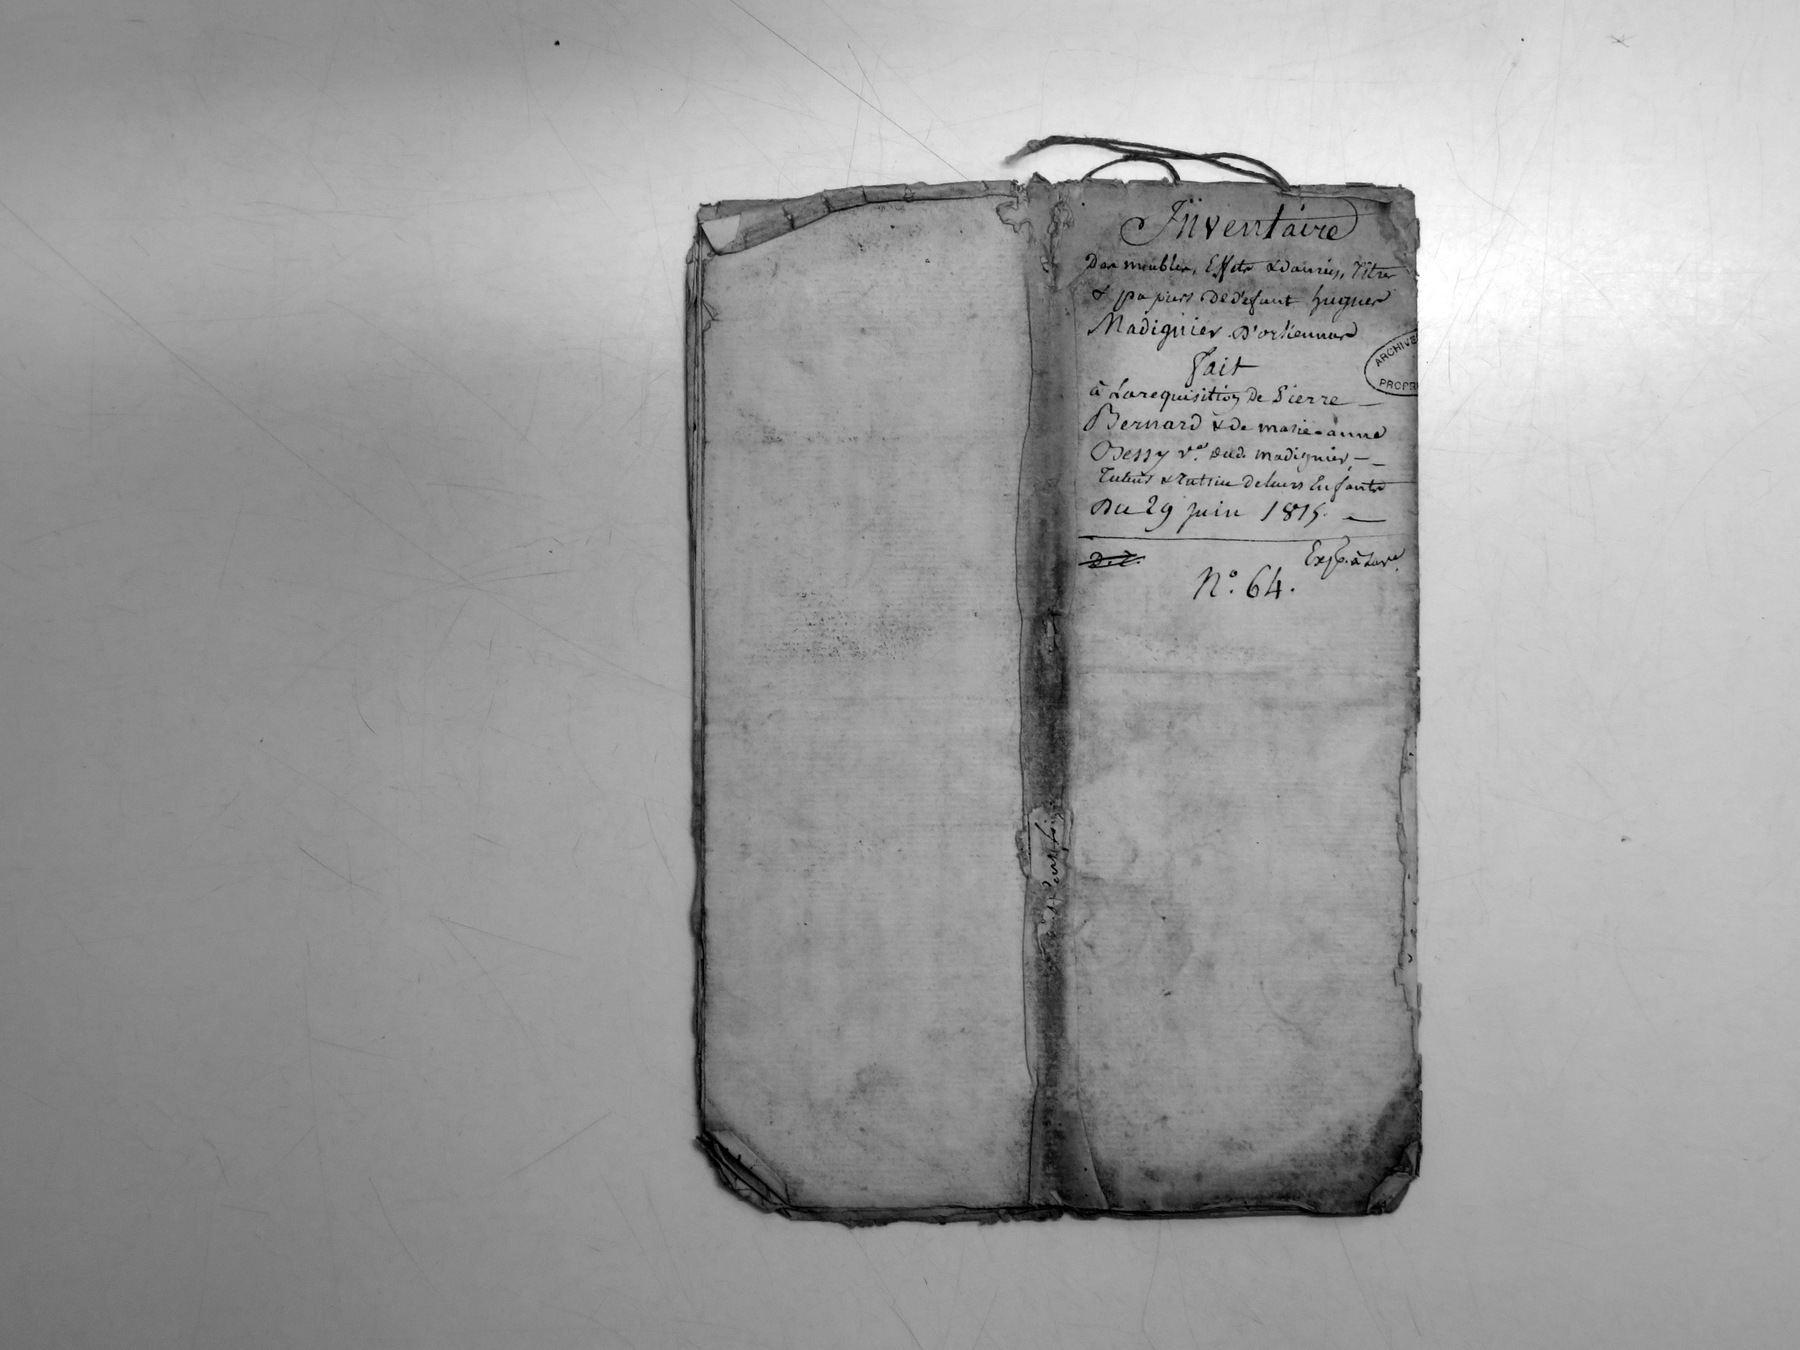 Inventaire
Des meubles, Effets & danrées, Titres
& papiers de défunt hugues
Madignier d'orliennas
fait
à La requisition de Pierre
Bernard & de marie-anne
Bessy v.e dud. madignier,
Tuteur & Tutrice de leurs Enfants
Du 29 juin 1815.
N.° 64.
ARCHIVE
PROPR